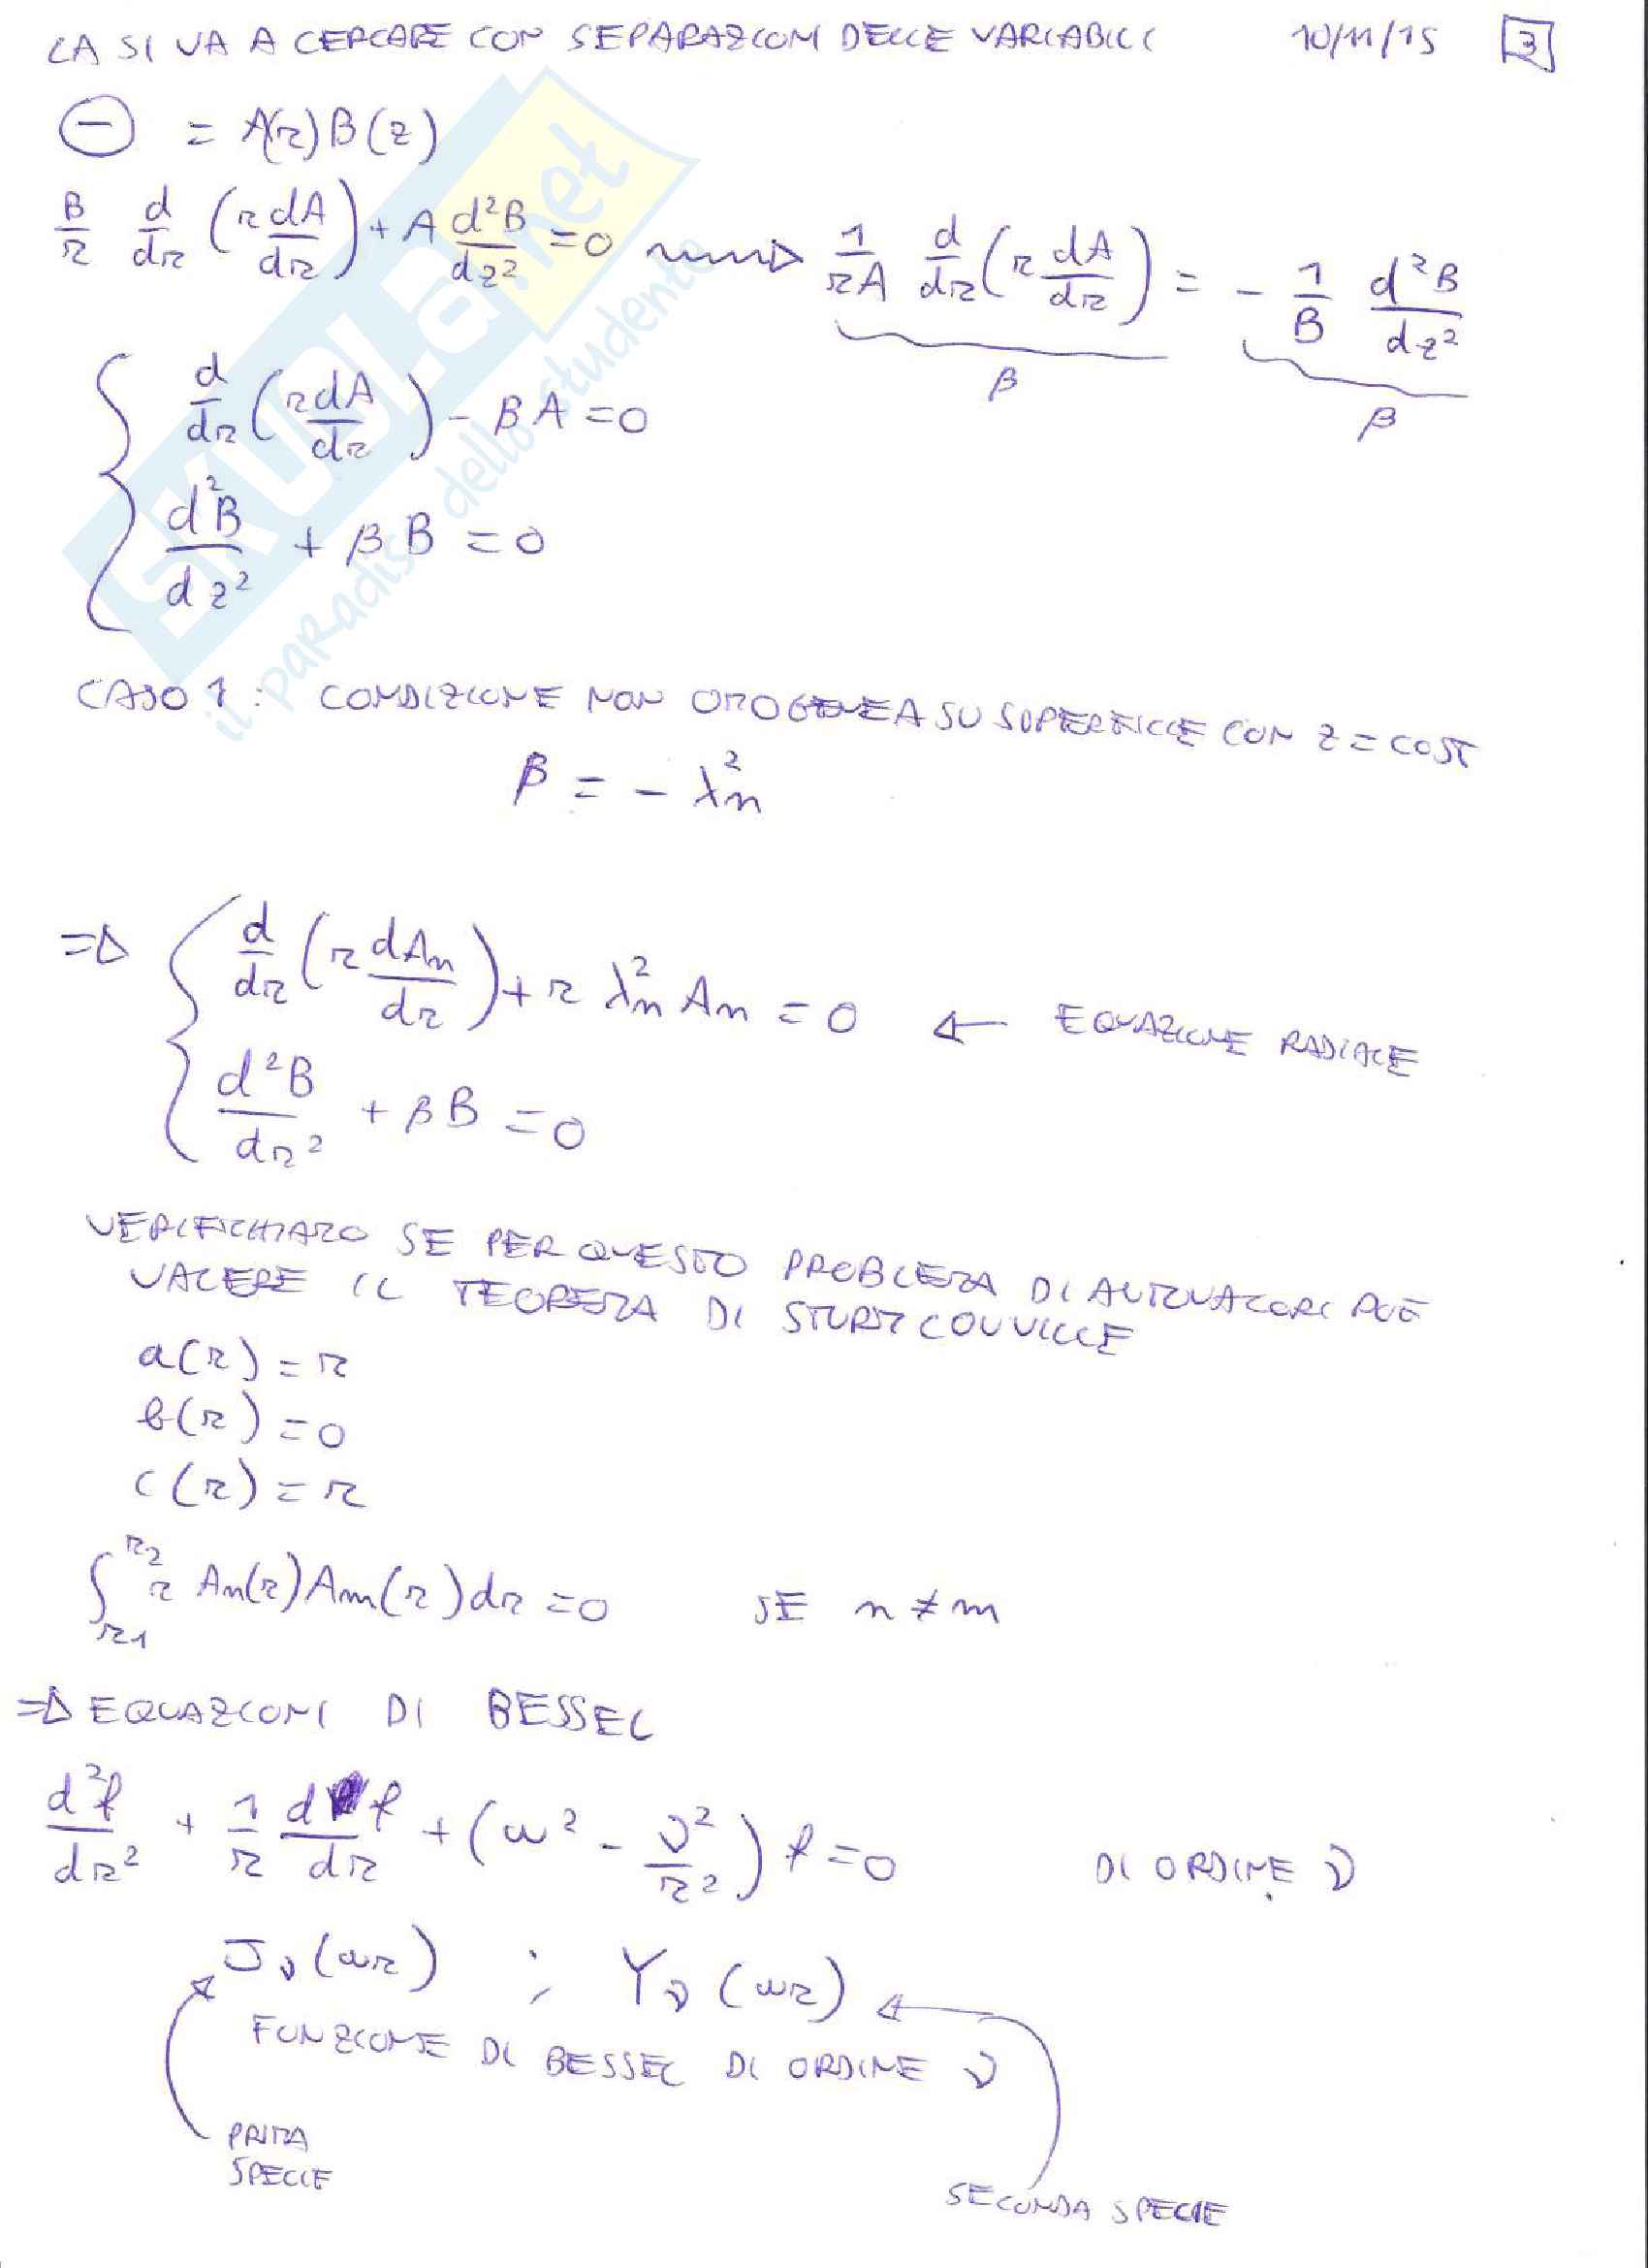 LA SI VA A CERCARE CON SEPARAZIONI DELLE VARIABILI 10/11/15 3
Θ = A(r)B(z)
B/r d/dr (r dA/dr) + A d²B/dz² = 0 ⟿ 1/(rA) d/dr (r dA/dr) = - 1/B d²B/dz²
β β
{ d/dr (r dA/dr) - βA = 0
d²B/dz² + βB = 0
CASO 1: CONDIZIONE NON OMOGENEA SU SUPERFICIE CON z = COST
β = - λn²
⇒ { d/dr (r dAn/dr) + r λn² An = 0 ← EQUAZIONE RADIALE
d²B/dr² + βB = 0
VERIFICHIAMO SE PER QUESTO PROBLEMA DI AUTOVALORI PUÒ
VALERE IL TEOREMA DI STURM LOUVILLE
a(r) = r
b(r) = 0
c(r) = r
∫r1^r2 r An(r)Am(r)dr = 0 SE n ≠ m
⇒ EQUAZIONI DI BESSEL
d²f/dr² + 1/r df/dr + (ω² - ν²/r²) f = 0 DI ORDINE ν
Jν(ωr) ; Yν(ωr)
FUNZIONE DI BESSEL DI ORDINE ν
PRIMA
SPECIE
SECONDA SPECIE
SKUOLA.net
il paradiso dello studente